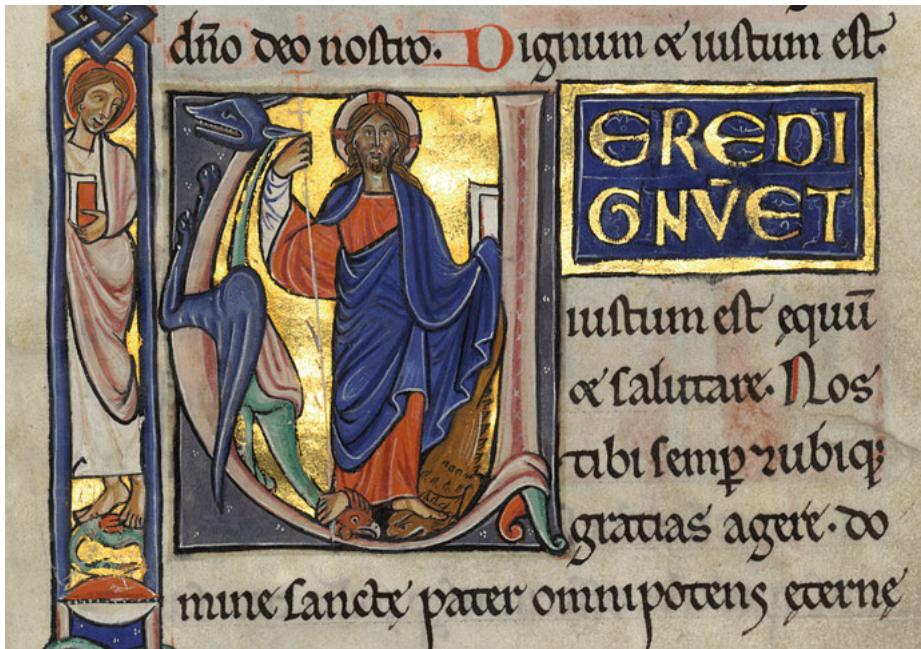 dño deo nostro. Dignum & iustum est.
VEREDI
GNŪET
iustum est ęquū
& salutare. Nos
tibi semp̲ ⁊ubiq;
gratias agere. do
mine sanctę pater omnipotens ęterne